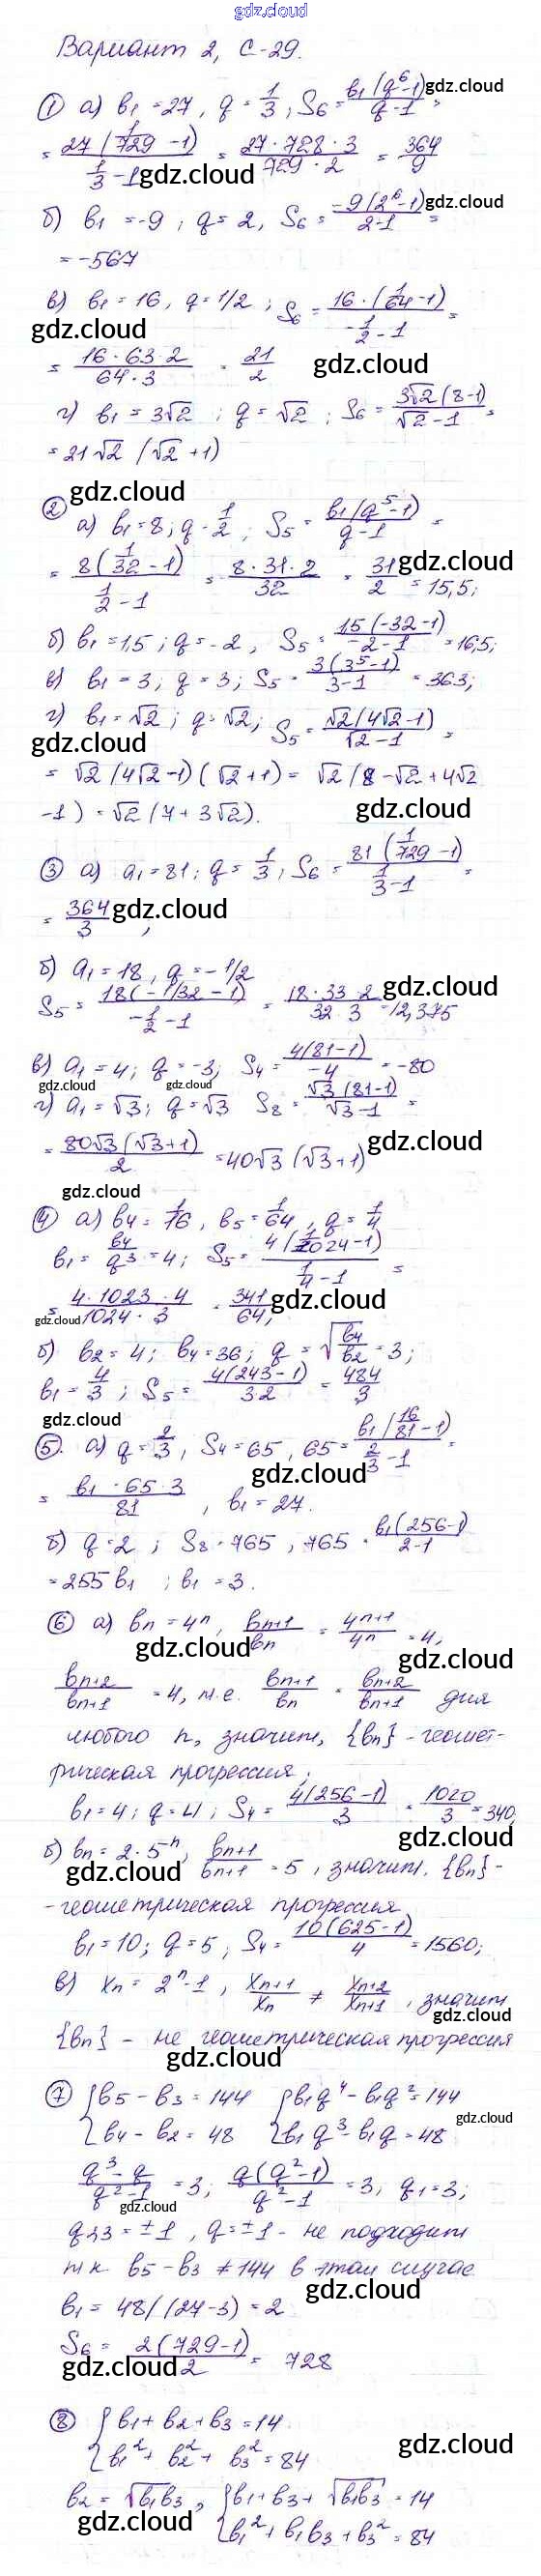 gdz.cloud
Вариант 2, С-29.
① а) b₁ = 27, q = 1/3; S₆ = b₁(q⁶-1)/(q-1) =
gdz.cloud
= 27(1/729 - 1)/(1/3 - 1) = 27·728·3/(729·2) = 364/9
gdz.cloud
б) b₁ = -9; q = 2, S₆ = -9(2⁶-1)/(2-1) =
gdz.cloud
= -567
в) b₁ = 16, q = 1/2; S₆ = 16·(1/64 - 1)/(-1/2 - 1) =
gdz.cloud
= 16·63·2/(64·3) = 21/2
gdz.cloud
г) b₁ = 3√2; q = √2; S₆ = 3√2(8-1)/(√2-1) =
= 21√2(√2+1)
gdz.cloud
② а) b₁ = 8; q = 1/2; S₅ = b₁(q⁵-1)/(q-1) =
= 8(1/32 - 1)/(1/2 - 1) = 8·31·2/32 = 31/2 = 15,5;
gdz.cloud
б) b₁ = 1,5; q = -2, S₅ = 1,5(-32-1)/(-2-1) = 16,5;
в) b₁ = 3; q = 3; S₅ = 3(3⁵-1)/(3-1) = 363;
г) b₁ = √2; q = √2; S₅ = √2(4√2-1)/(√2-1) =
gdz.cloud
= √2(4√2-1)(√2+1) = √2(8-√2+4√2
-1) = √2(7+3√2).
gdz.cloud
③ а) a₁ = 81; q = 1/3; S₆ = 81(1/729 - 1)/(1/3 - 1) =
= 364/3,
gdz.cloud
б) a₁ = 18, q = -1/2
S₅ = 18(-1/32 - 1)/(-1/2 - 1) = 18·33·2/(32·3) = 12,375
gdz.cloud
в) a₁ = 4; q = -3; S₄ = 4(81-1)/-4 = -80
gdz.cloud
gdz.cloud
г) a₁ = √3; q = √3 S₈ = √3(81-1)/(√3-1) =
= 80√3(√3+1)/2 = 40√3(√3+1)
gdz.cloud
gdz.cloud
④ а) b₄ = 1/16, b₅ = 1/64, q = 1/4
b₁ = b₄/q³ = 4; S₅ = 4(1/1024 - 1)/(1/4 - 1) =
= 4·1023·4/(1024·3) = 341/64;
gdz.cloud
gdz.cloud
б) b₂ = 4; b₄ = 36; q = √(b₄/b₂) = 3;
b₁ = 4/3; S₅ = 4(243-1)/(3·2) = 484/3
gdz.cloud
⑤. а) q = 2/3, S₄ = 65, 65 = b₁(16/81 - 1)/(2/3 - 1) =
gdz.cloud
= b₁·65·3/81, b₁ = 27.
б) q = 2; S₈ = 765, 765 = b₁(256-1)/(2-1)
= 255b₁; b₁ = 3.
⑥ а) bn = 4ⁿ, bn+1/bn = 4ⁿ⁺¹/4ⁿ = 4,
gdz.cloud
gdz.cloud
bn+2/bn+1 = 4, т.е. bn+1/bn = bn+2/bn+1 для
любого n, значит, {bn} - геомет-
рическая прогрессия;
b₁ = 4; q = 4; S₄ = 4(256-1)/3 = 1020/3 = 340;
б) bn = 2·5ⁿ, bn+1/bn+1 = 5, значит. {bn} -
gdz.cloud
gdz.cloud
- геометрическая прогрессия
b₁ = 10; q = 5; S₄ = 10(625-1)/4 = 1560;
в) xn = 2ⁿ-1, xn+1/xn ≠ xn+2/xn+1, значит
gdz.cloud
{bn} - не геометрическая прогрессия
gdz.cloud
⑦ {b₅ - b₃ = 144 {b₁q⁴ - b₁q² = 144
{b₄ - b₂ = 48 {b₁q³ - b₁q = 48
gdz.cloud
q³-q/q²-1 = 3; q(q²-1)/q²-1 = 3, q₁ = 3;
gdz.cloud
q₂,₃ = ±1, q = ±1 - не подходит
т.к. b₅ - b₃ ≠ 144 в этом случае
gdz.cloud
b₁ = 48/(27-3) = 2
S₆ = 2(729-1)/2 = 728
gdz.cloud
⑧ {b₁ + b₂ + b₃ = 14
{b₁² + b₂² + b₃² = 84
gdz.cloud
b₂ = √b₁b₃, {b₁ + b₃ + √b₁b₃ = 14
gdz.cloud
{b₁² + b₁b₃ + b₃² = 84